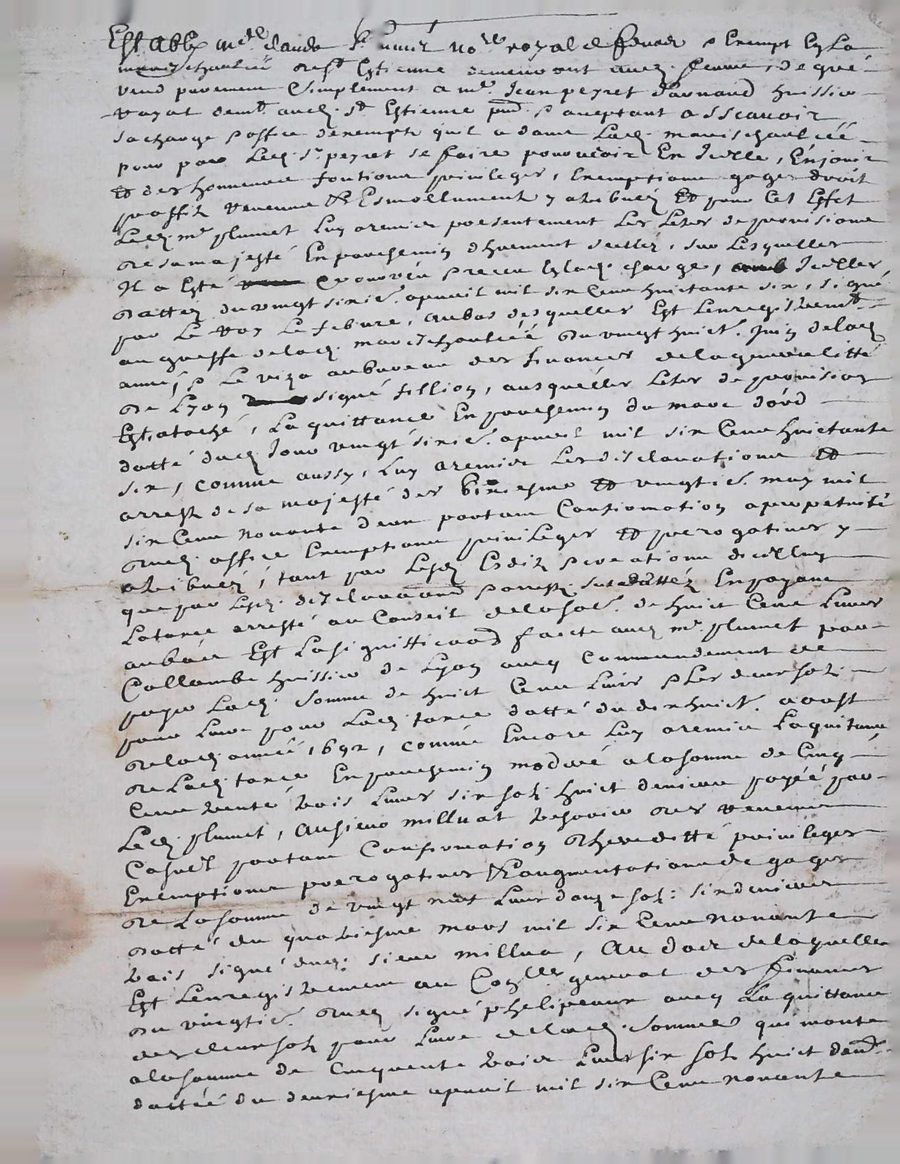 Est estably me claude plumet nore royal de feurs & Exempt En La
mareschaussée de st Estienne demeurant audit feurs, de gré
vend purement simplement a me Jean peyret Darnaud huissier
royal demt audit st Estienne pnt & aceptant asscavoir
sa charge & office dexempt quil a dans Ladit mareschaussée
pour par Ledit sr peyret se faire pourvoir En Icelle, En jouir
et des honneurs fontions privileges, Exemptions gages droit
proffit revenus & Esmollument y atribués Et pour Cet Effet
Ledit me plumet Luy a remis presentement Les Letres de provisions
de sa majesté En parchemin dhuement scellés, sur Lesquelles
Il a Esté pourveu & receu En lad charge, Icelles
dattés du vingt sixie. apvril mil six Cens huictante six, signé
par Le roy Le febure, au bas desquelles Est Lenregistrement
au greffe de ladit mareschaussée du vingt huict. Juin deladit
année, & Le viza au bureau des finances de la generalitté
de Lyon signé fillion, ausquelles Letres de provision
Est ataché, La quittance En parchemin du marc dord
datté dudit Jour vingt sixie. apvril mil six Cens huictante
six, comme aussy, Luy a remis Les desclarations Et
arrest de sa majesté des sixiesme Et vingtie. may mil
six Cens nonante deux portant Confirmation a perpetuité
dudit office Exemptions privileges Et prerogatives y
atribués, tant par Lesd Edits & creations dicelluy
que par Lesd. desclarations & arrest susdattés En payant
La taxe arresté au Conseil de la so. de huict Cens Livres
au bas Est La signiffication faicte audit me plumet par
Collombe huissier de Lyon avec Commandement de
payer Ladit somme de huict Cens Livres & Les deux sols
pour Livre pour Ladit taxe datté du dix huict. aoust
deladit année 1692, comme Encore Luy a remis La quitance
de Ladit taxe En parchemin moderé a la somme de Cinq
Cens trente trois Livres six sols huict deniers payée par
Ledit plumet, au sieur milluat tresorier des revenus
Casuels portant Confirmation dhereditté privileges
Exemptions prerogatives & augmentations de gages
de La somme de vingt neuf Livres douze sols: six deniers
datté du quatriesme mars mil six Cens nonante
trois signé dudit sieur milluat, Au dos de laquelle
Est Lenregistrement au Con[trol]le general des finances
du vingtie. dudit signé phelipeaux avec La quittance
des deux sols pour Livre deladit somme qui monte
a la somme de Cinquante trois Livres six sols huict den.
dattée du deuxiesme apvril mil six Cens nonante